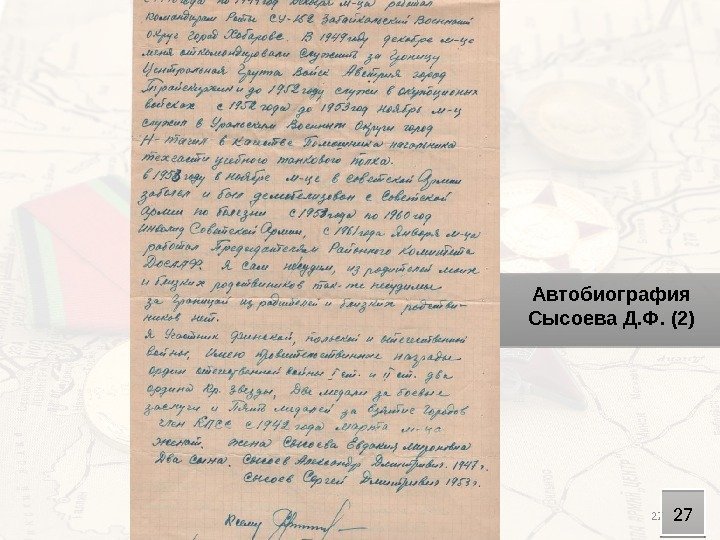 по 1949 год декабрь м-ца работал
командиром Роты СУ-152 Забайкальский Военный
округ город Хабаровс. В 1949 году декабре м-це
меня откомандировали служить за границу
Центральная Группа Войск Австрия город
и до 1952 году служил в окупоционых
войсках с 1952 года до 1953 год ноябрь м-ц
служил в Уральским Военным Округи город
Н-Тагил в качестве Помошника начальника
техсасти учебного танкового полка.
в 1953 году в ноябре м-це в Советской Армии
заболел и был демобелизован с Советской
Армии по болезни с 1953 года по 1960 год
инвалид Советской Армии, с 1961 года Января м-ца
работал Председателем Районного Комитета
ДОСААФ. Я сам несудим, из родителей моих
и близких родственников так-же несудимы
за границай из родителей и близких родствен-
ников нет.
Я Участник финской, польской и отечественной
войны, имею правительственные награды
орден отечественной войны I ст. и II ст. два
ордина Кр. Звезды, Две медали за боевые
заслуги и Пять медалей за взятие городов
член КПСС с 1942 года марта м-ца
женат. жена Сысоева Евдакия
Два сына. Сысоев Александр Дмитриевич. 1947 г.
Сысоев Сергей Дмитриевич 1953 г.
Автобиография
Сысоева Д.Ф. (2)
27